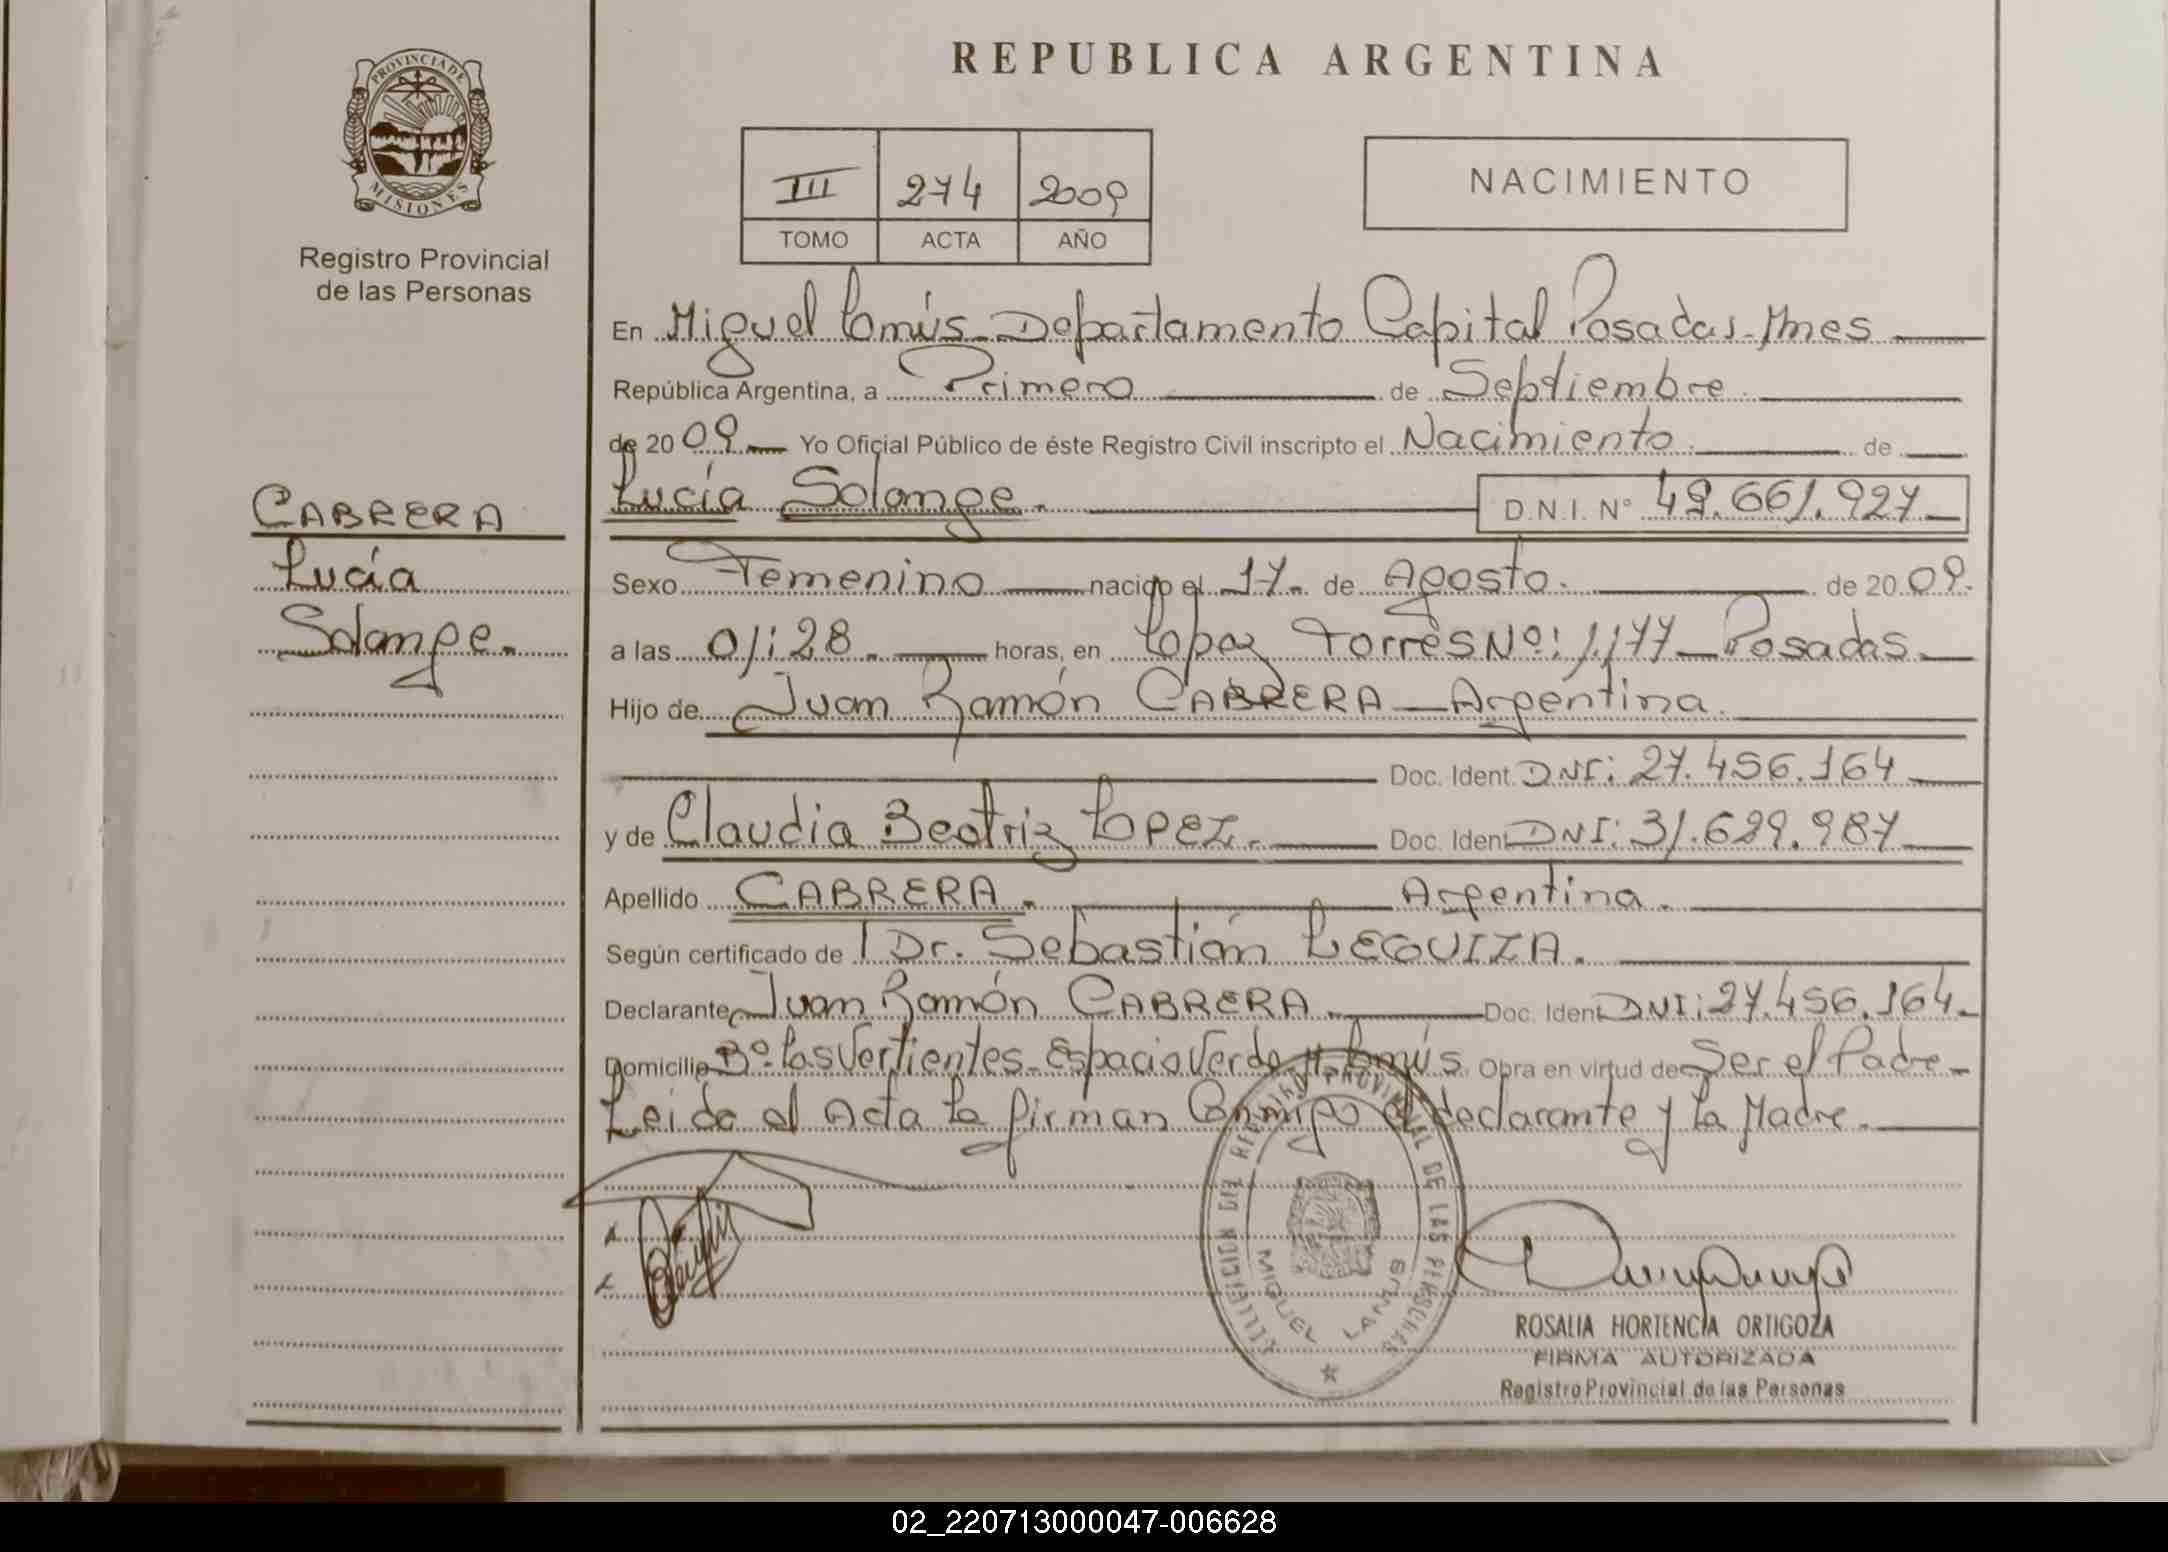 REPUBLICA ARGENTINA
PROVINCIA DE
MISIONES
Registro Provincial
de las Personas
III 274 2009
TOMO ACTA AÑO
NACIMIENTO
En Miguel Lanús - Departamento Capital Posadas - Mnes
República Argentina, a Primero de Septiembre
de 2009 Yo Oficial Público de éste Registro Civil inscripto el Nacimiento. de
Lucía Solange. D.N.I. Nº 49.661.927
CABRERA
Lucía
Solange.
Sexo Femenino nacido el 17. de Agosto. de 2009.
a las 01:28. horas, en Lopez Torres Nº: 1.177 - Posadas.
Hijo de Juan Ramón CABRERA - Argentina.
Doc. Ident. DNI: 27.456.164
y de Claudia Beatriz LOPEZ. Doc. Ident DNI: 31.629.987
Apellido CABRERA. Argentina.
Según certificado de Dr. Sebastián LEGUIZA.
Declarante Juan Ramón CABRERA. Doc. Ident DNI: 27.456.164.
Domicilio Bº. Las Vertientes - Espacio Verde Lanús. Obra en virtud de Ser el Padre
Leida el Acta la firman Conmigo el declarante y la Madre.
DELEGACION DEL REGISTRO PROVINCIAL DE LAS PERSONAS
MIGUEL LANUS
ROSALIA HORTENCIA ORTIGOZA
FIRMA AUTORIZADA
Registro Provincial de las Personas
02_220713000047-006628